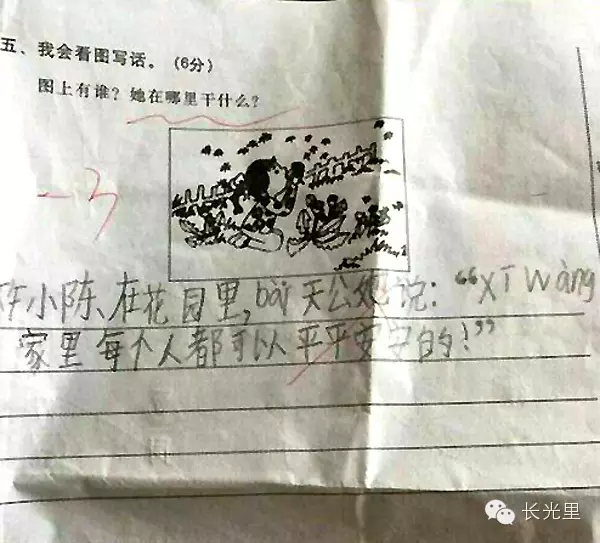 五、我会看图写话。(6分)
图上有谁？她在哪里干什么？
-3
小陈、在花园里,bài天公她说:“xīwàng
家里每个人都可以平平安安的!”
长光里